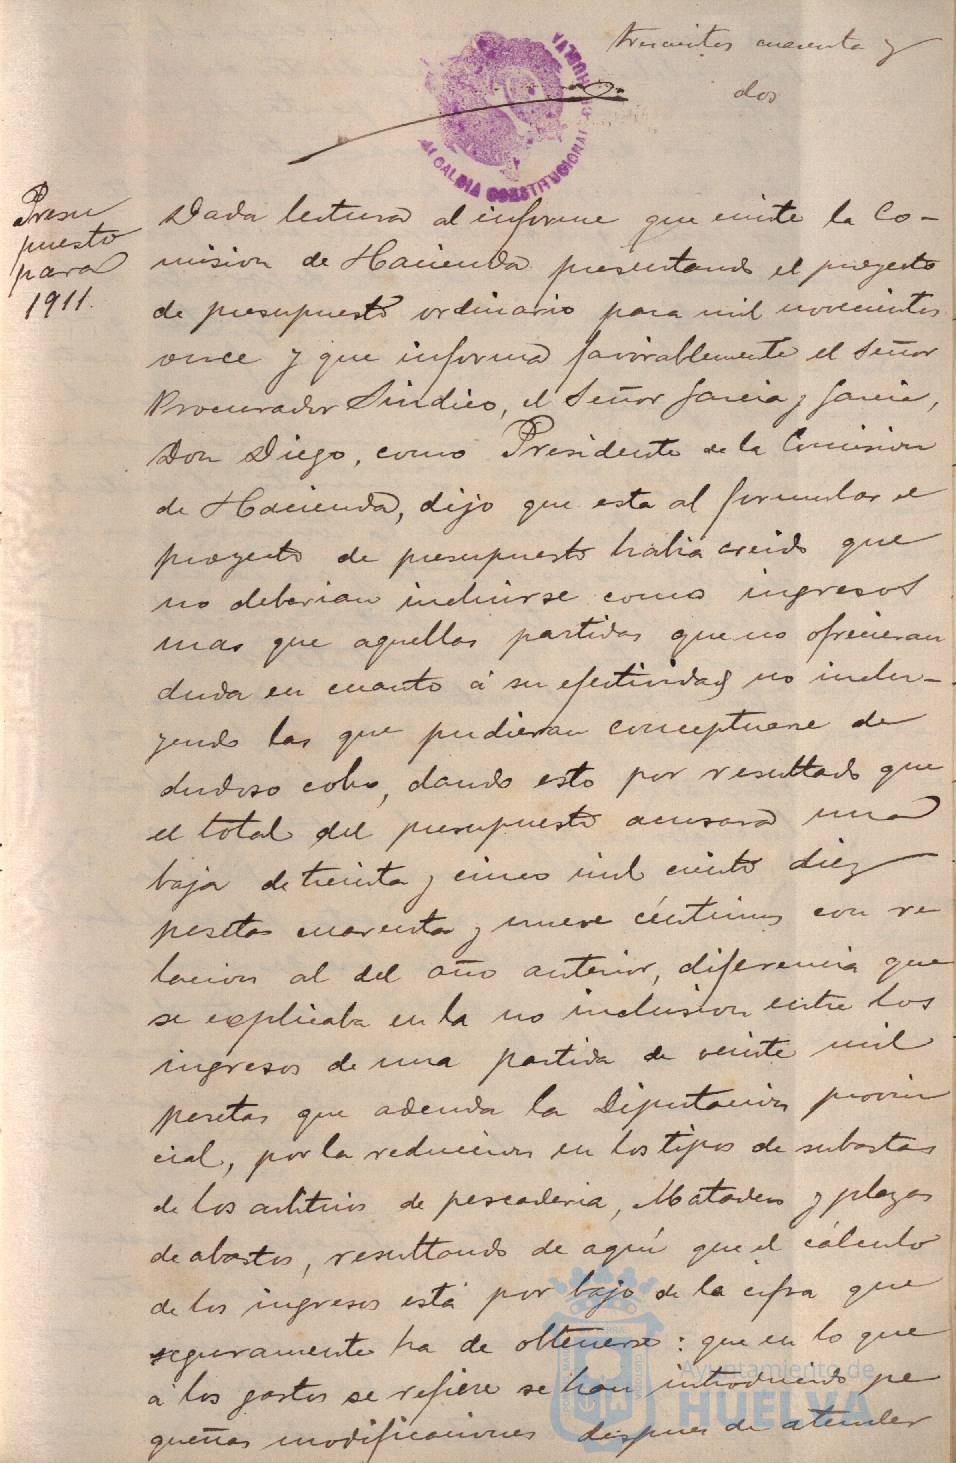 trescientos cuarenta y
dos
ALCALDIA CONSTITUCIONAL HUELVA
Presu
puesto
para
1911.
Dada lectura al informe que emite la Co-
mision de Hacienda presentando el proyecto
de presupuesto ordinario para mil novecientos
once y que informa favorablemente el Señor
Procurador Sindico, el Señor Garcia y Garcia,
Don Diego, como Presidente de la Comision
de Hacienda, dijo que esta al formular el
proyecto de presupuesto habia creido que
no deberian incluirse como ingresos
mas que aquellas partidas que no ofrecieran
duda en cuanto á su efectividad, no inclu-
yendo las que pudieran conceptuarse de
dudoso cobro, dando esto por resultado que
el total del presupuesto acusara una
baja de treinta y cinco mil ciento diez
pesetas cuarenta y nueve céntimos con re
lacion al del año anterior, diferencia que
se explicaba en la no inclusion entre los
ingresos de una partida de veinte mil
pesetas que adeuda la Diputacion provin
cial, por la reduccion en los tipos de subastas
de los arbitrios de pescaderia, Matadero y plazas
de abastos, resultando de aquí que el cálculo
de los ingresos está por bajo de la cifra que
seguramente ha de obtenerse: que en lo que
á los gastos se refiere se han introducido pe
queñas modificaciones despues de atender
Ayuntamiento de
HUELVA